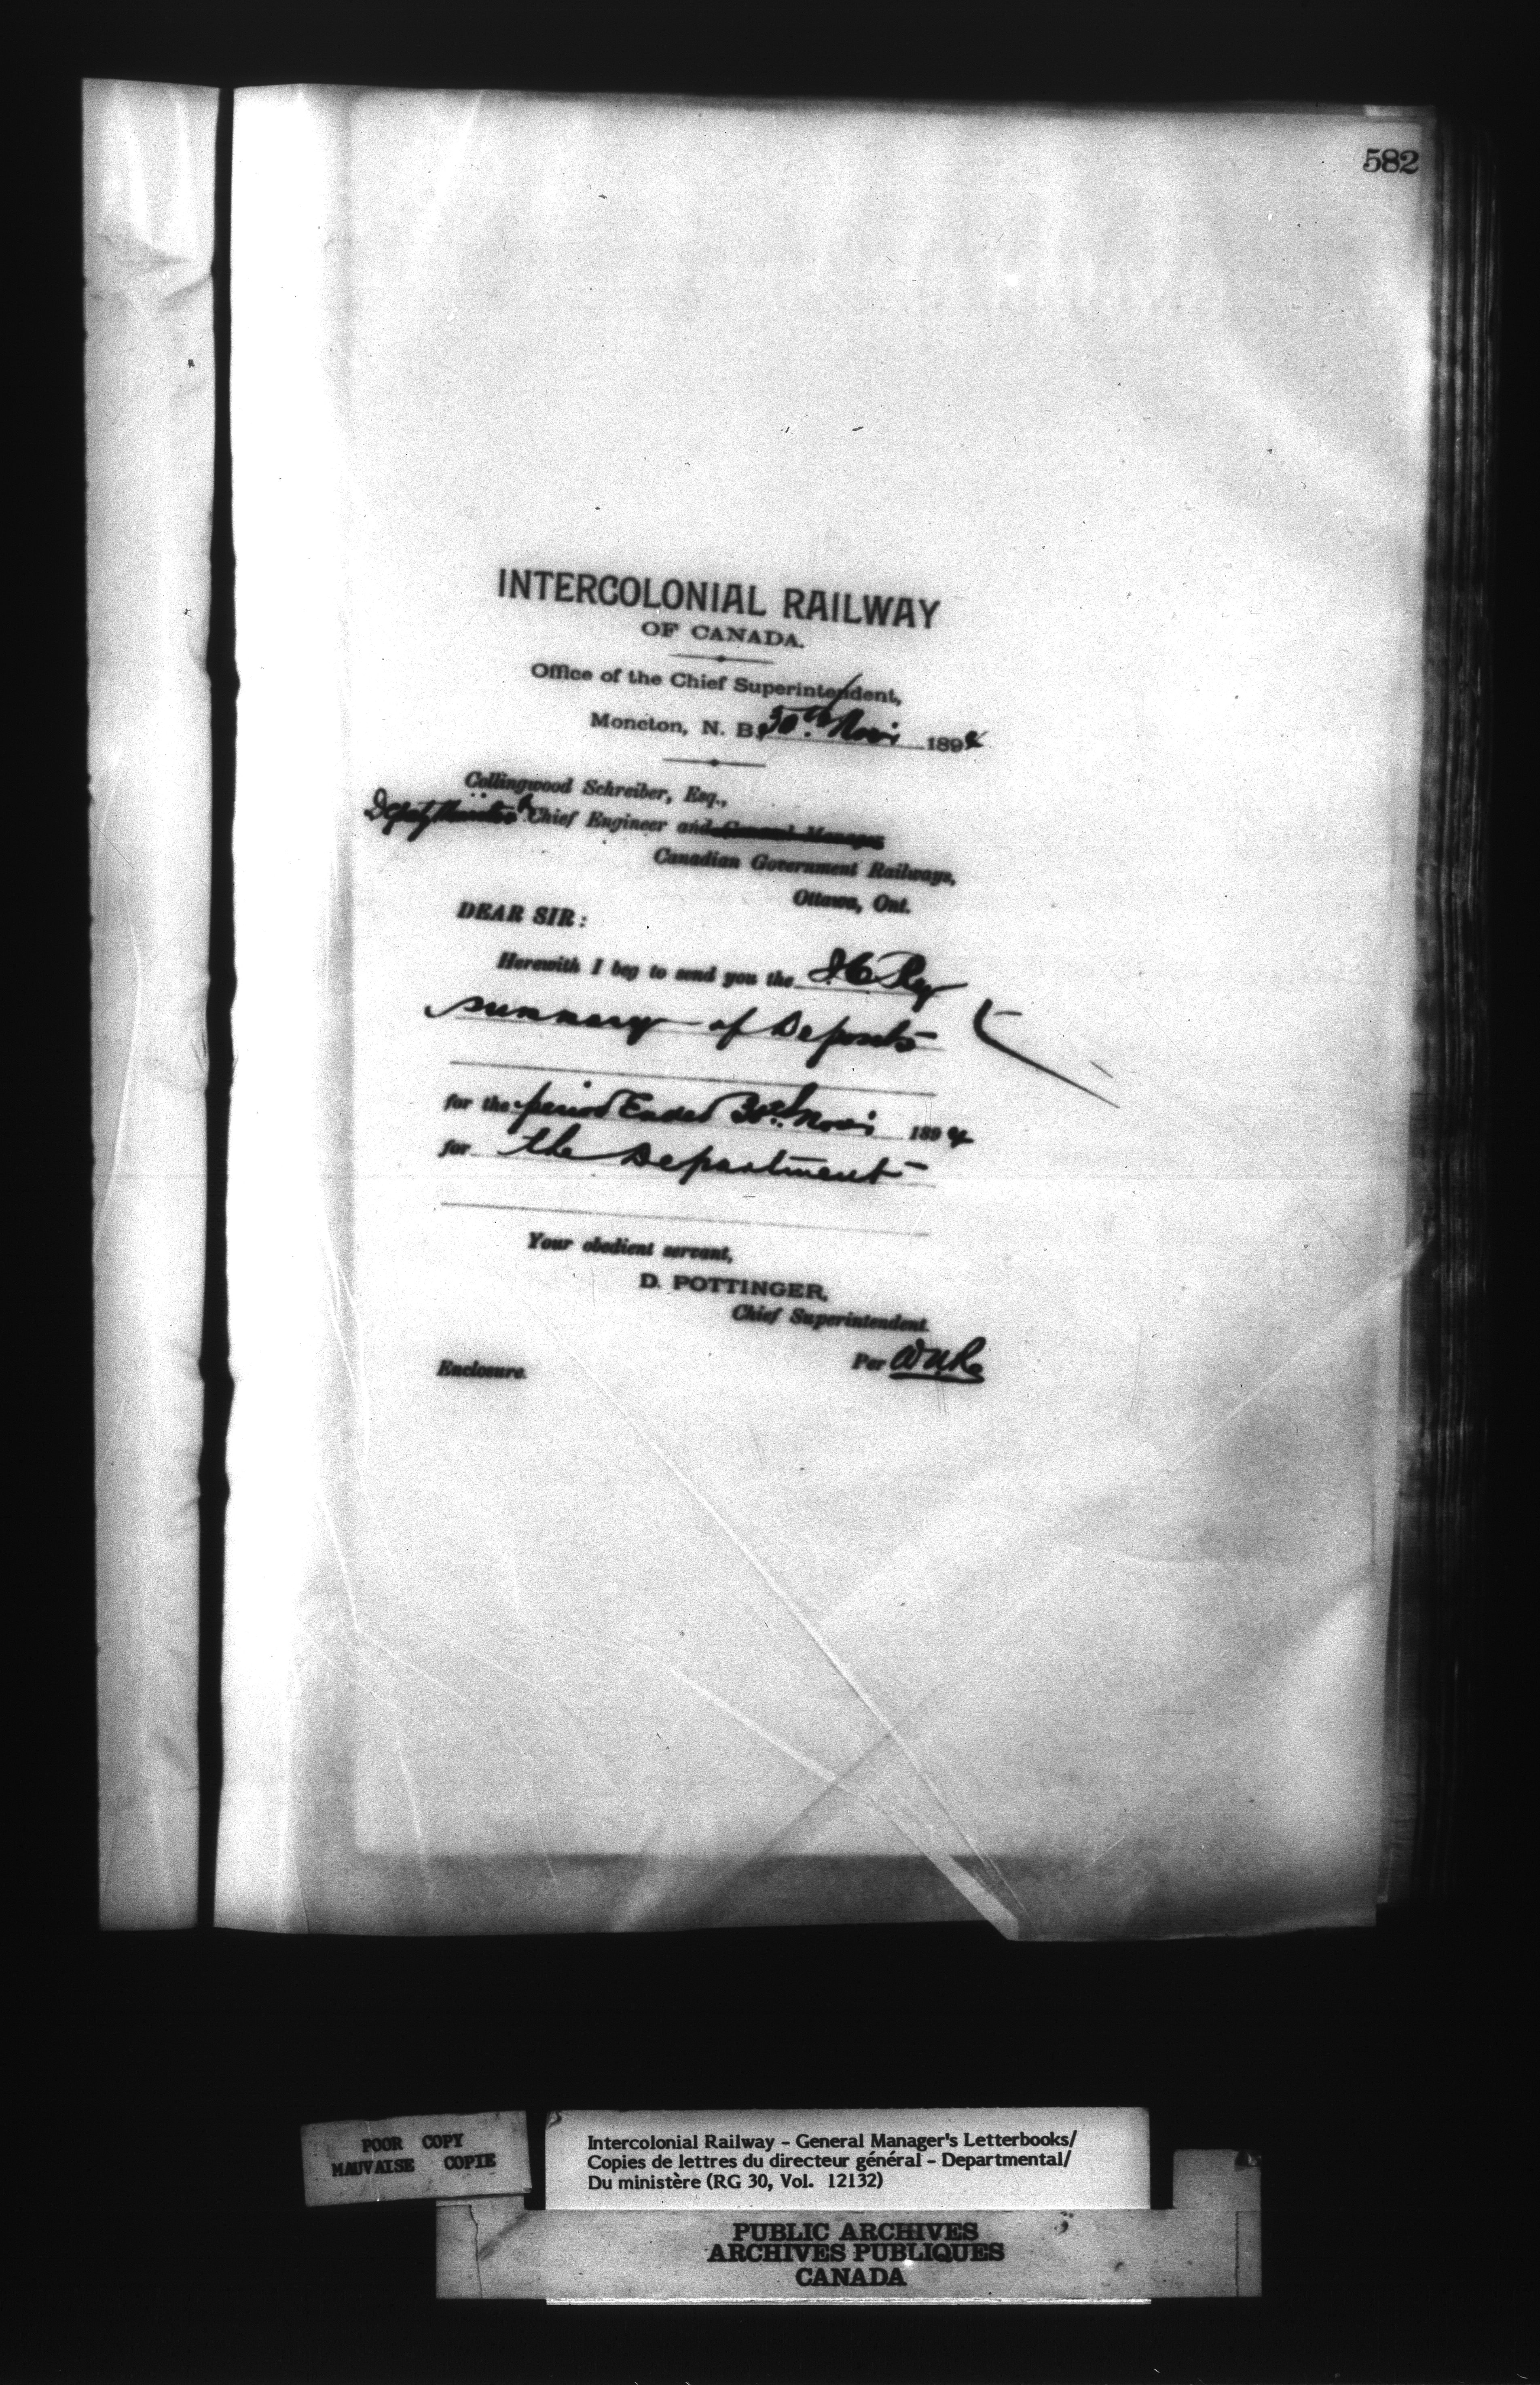 582
INTERCOLONIAL RAILWAY
OF CANADA.
Office of the Chief Superintendent,
Moncton, N. B. 30th Nov. 1894
Collingwood Schreiber, Esq.,
Deputy Minister & Chief Engineer and General Manager
Canadian Government Railways,
Ottawa, Ont.
DEAR SIR:
Herewith I beg to send you the I.C. Ry
summary of Deposits
for the period Ended 30th Nov. 1894
for the Department
Your obedient servant,
D. POTTINGER,
Chief Superintendent.
Per
Enclosure.
POOR COPY
MAUVAISE COPIE
Intercolonial Railway – General Manager's Letterbooks/
Copies de lettres du directeur général – Departmental/
Du ministère (RG 30, Vol. 12132)
PUBLIC ARCHIVES
ARCHIVES PUBLIQUES
CANADA